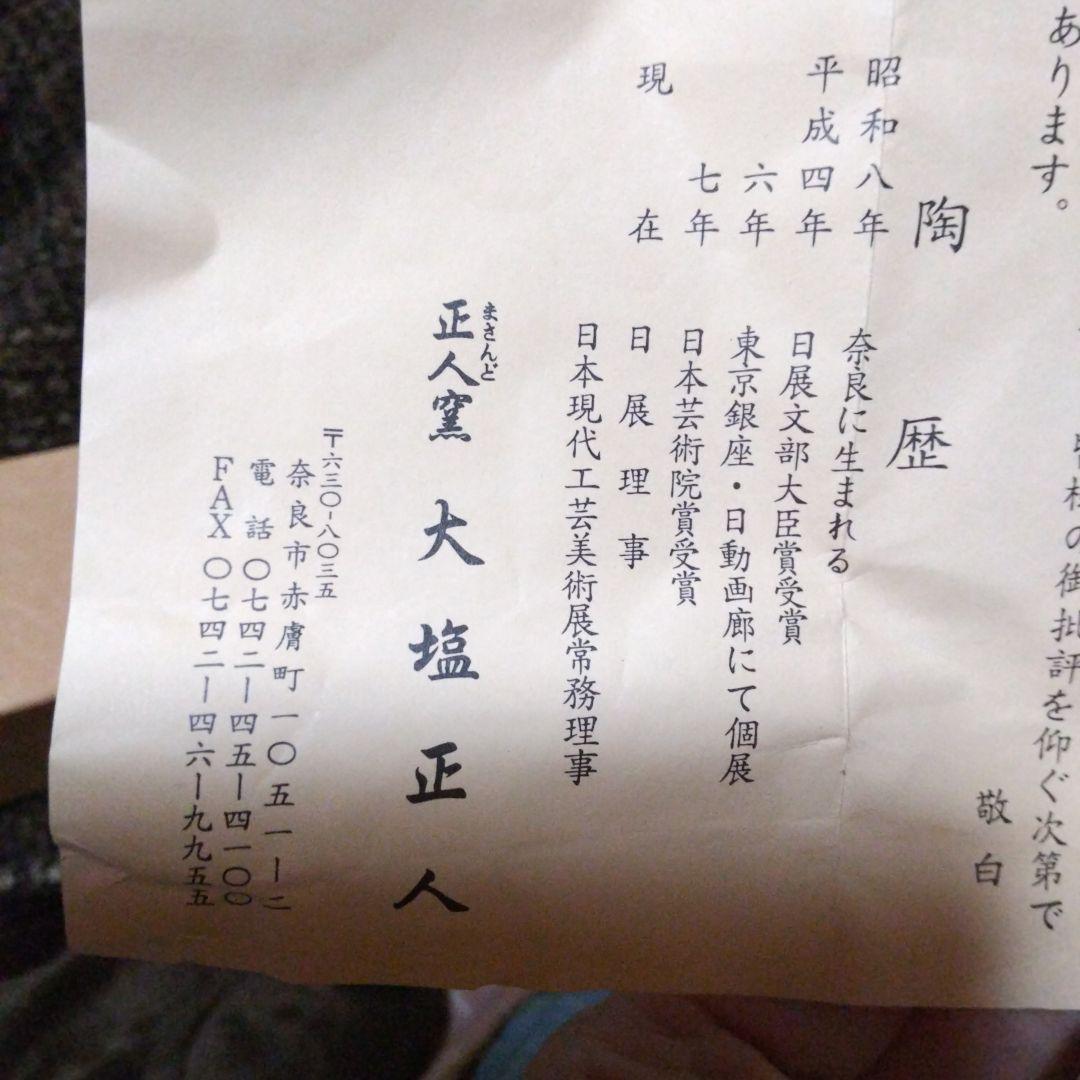 あります。
皆様の御批評を仰ぐ次第で
敬白
陶歴
昭和八年 奈良に生まれる
平成四年 日展文部大臣賞受賞
六年 東京銀座・日動画廊にて個展
七年 日本芸術院賞受賞
現在 日展理事
日本現代工芸美術展常務理事
まさんど
正人窯 大塩正人
〒六三〇-八〇三五
奈良市赤膚町一〇五一ー二
電話〇七四二ー四五ー四一〇〇
FAX〇七四二ー四六ー九九五五